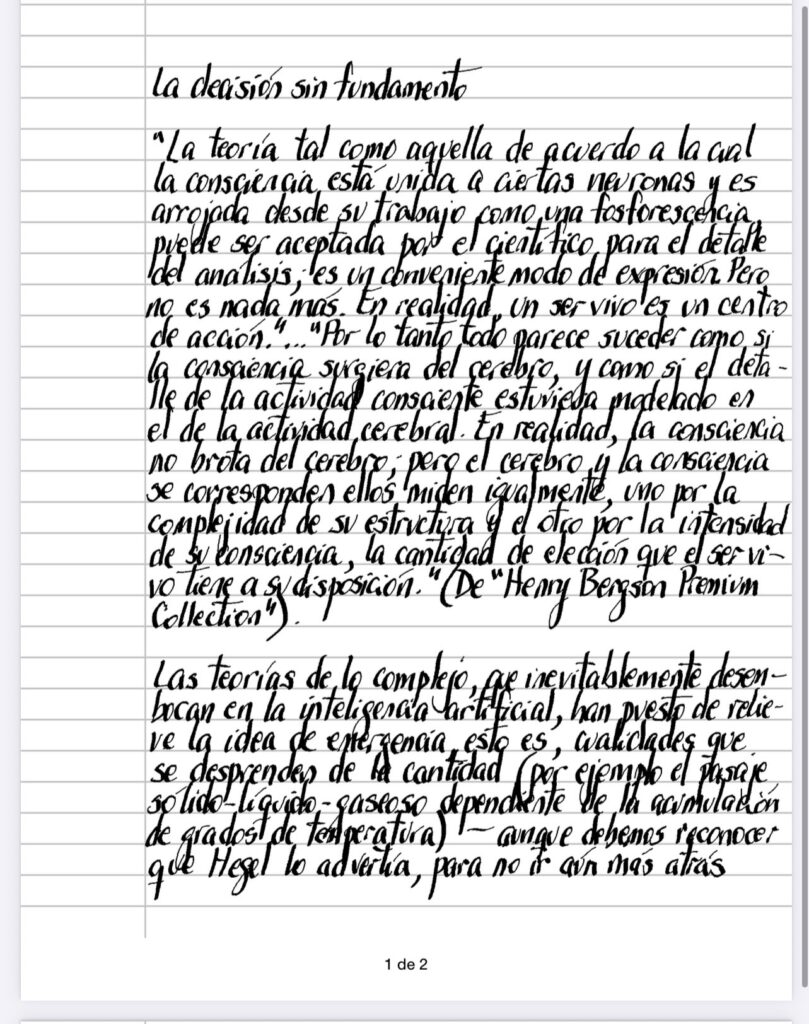 La decisión sin fundamento
"La teoría tal como aquella de acuerdo a la cual
la consciencia está unida a ciertas neuronas y es
arrojada desde su trabajo como una fosforescencia,
puede ser aceptada por el científico para el detalle
del análisis; es un conveniente modo de expresión. Pero
no es nada más. En realidad, un ser vivo es un centro
de acción."..."Por lo tanto todo parece suceder como si
la consciencia surgiera del cerebro, y como si el deta-
lle de la actividad consciente estuviera modelado en
el de la actividad cerebral. En realidad, la consciencia
no brota del cerebro; pero el cerebro y la consciencia
se corresponden ellos miden igualmente, uno por la
complejidad de su estructura y el otro por la intensidad
de su consciencia, la cantidad de elección que el ser vi-
vo tiene a su disposición." (De "Henry Bergson Premium
Collection").
Las teorías de lo complejo, que inevitablemente desem-
bocan en la inteligencia artificial, han puesto de relie-
ve la idea de emergencia, esto es, cualidades que
se desprenden de la cantidad (por ejemplo el pasaje
sólido-líquido-gaseoso dependiente de la acumulación
de grados de temperatura) – aunque debemos reconocer
que Hegel lo advertía, para no ir aún más atrás
1 de 2